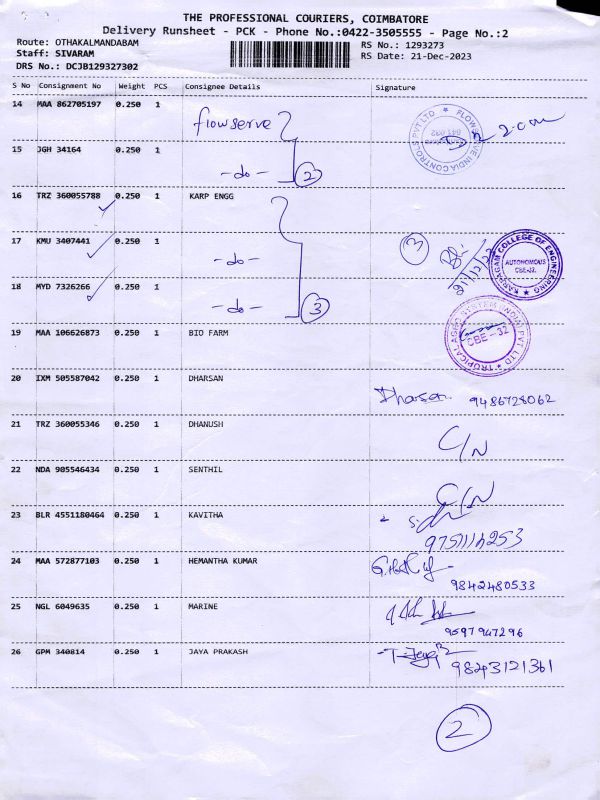 THE PROFESSIONAL COURIERS, COIMBATORE
Delivery Runsheet - PCK - Phone No.:0422-3505555 - Page No.:2
Route: OTHAKALMANDABAM
Staff: SIVARAM
DRS No.: DCJB129327302
RS No.: 1293273
RS Date: 21-Dec-2023
S No Consignment No Weight PCS Consignee Details Signature
14 MAA 862705197 0.250 1 flowserve
FLOWSERVE INDIA CONTROLS PVT LTD
641 032
15 JGH 34164 0.250 1 -do- 2
16 TRZ 360055788 0.250 1 KARP ENGG
17 KMU 3407441 0.250 1 -do- 3
21/12/23
KARPAGAM COLLEGE OF ENGINEERING
AUTONOMOUS
CBE-32.
18 MYD 7326266 0.250 1 -do- 3
19 MAA 106626873 0.250 1 BIO FARM
TROPICAL AGRO SYSTEM (INDIA) PVT LTD
CBE-32
20 IXM 505587042 0.250 1 DHARSAN Dharsan 9486728062
21 TRZ 360055346 0.250 1 DHANUSH C/N
22 NDA 905546434 0.250 1 SENTHIL C/N
23 BLR 4551180464 0.250 1 KAVITHA
24 MAA 572877103 0.250 1 HEMANTHA KUMAR
9842480533
25 NGL 6049635 0.250 1 MARINE
9597947296
26 GPM 340814 0.250 1 JAYA PRAKASH
9843121361
2